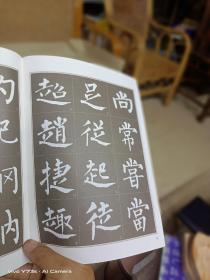 尚常嘗當
足從起徒
超趙捷趣
内
vivo Y73s · AI Camera